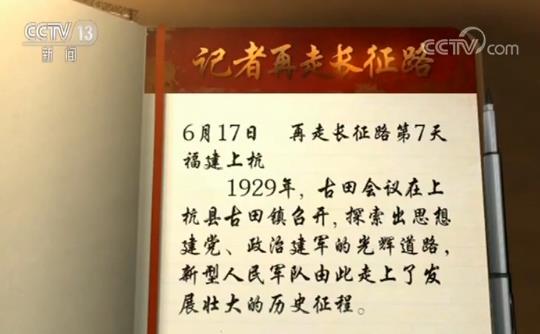 CCTV 13
新闻
CCTV.com
记者再走长征路
6月17日 再走长征路第7天
福建上杭
1929年，古田会议在上
杭县古田镇召开，探索出思想
建党、政治建军的光辉道路，
新型人民军队由此走上了发
展壮大的历史征程。